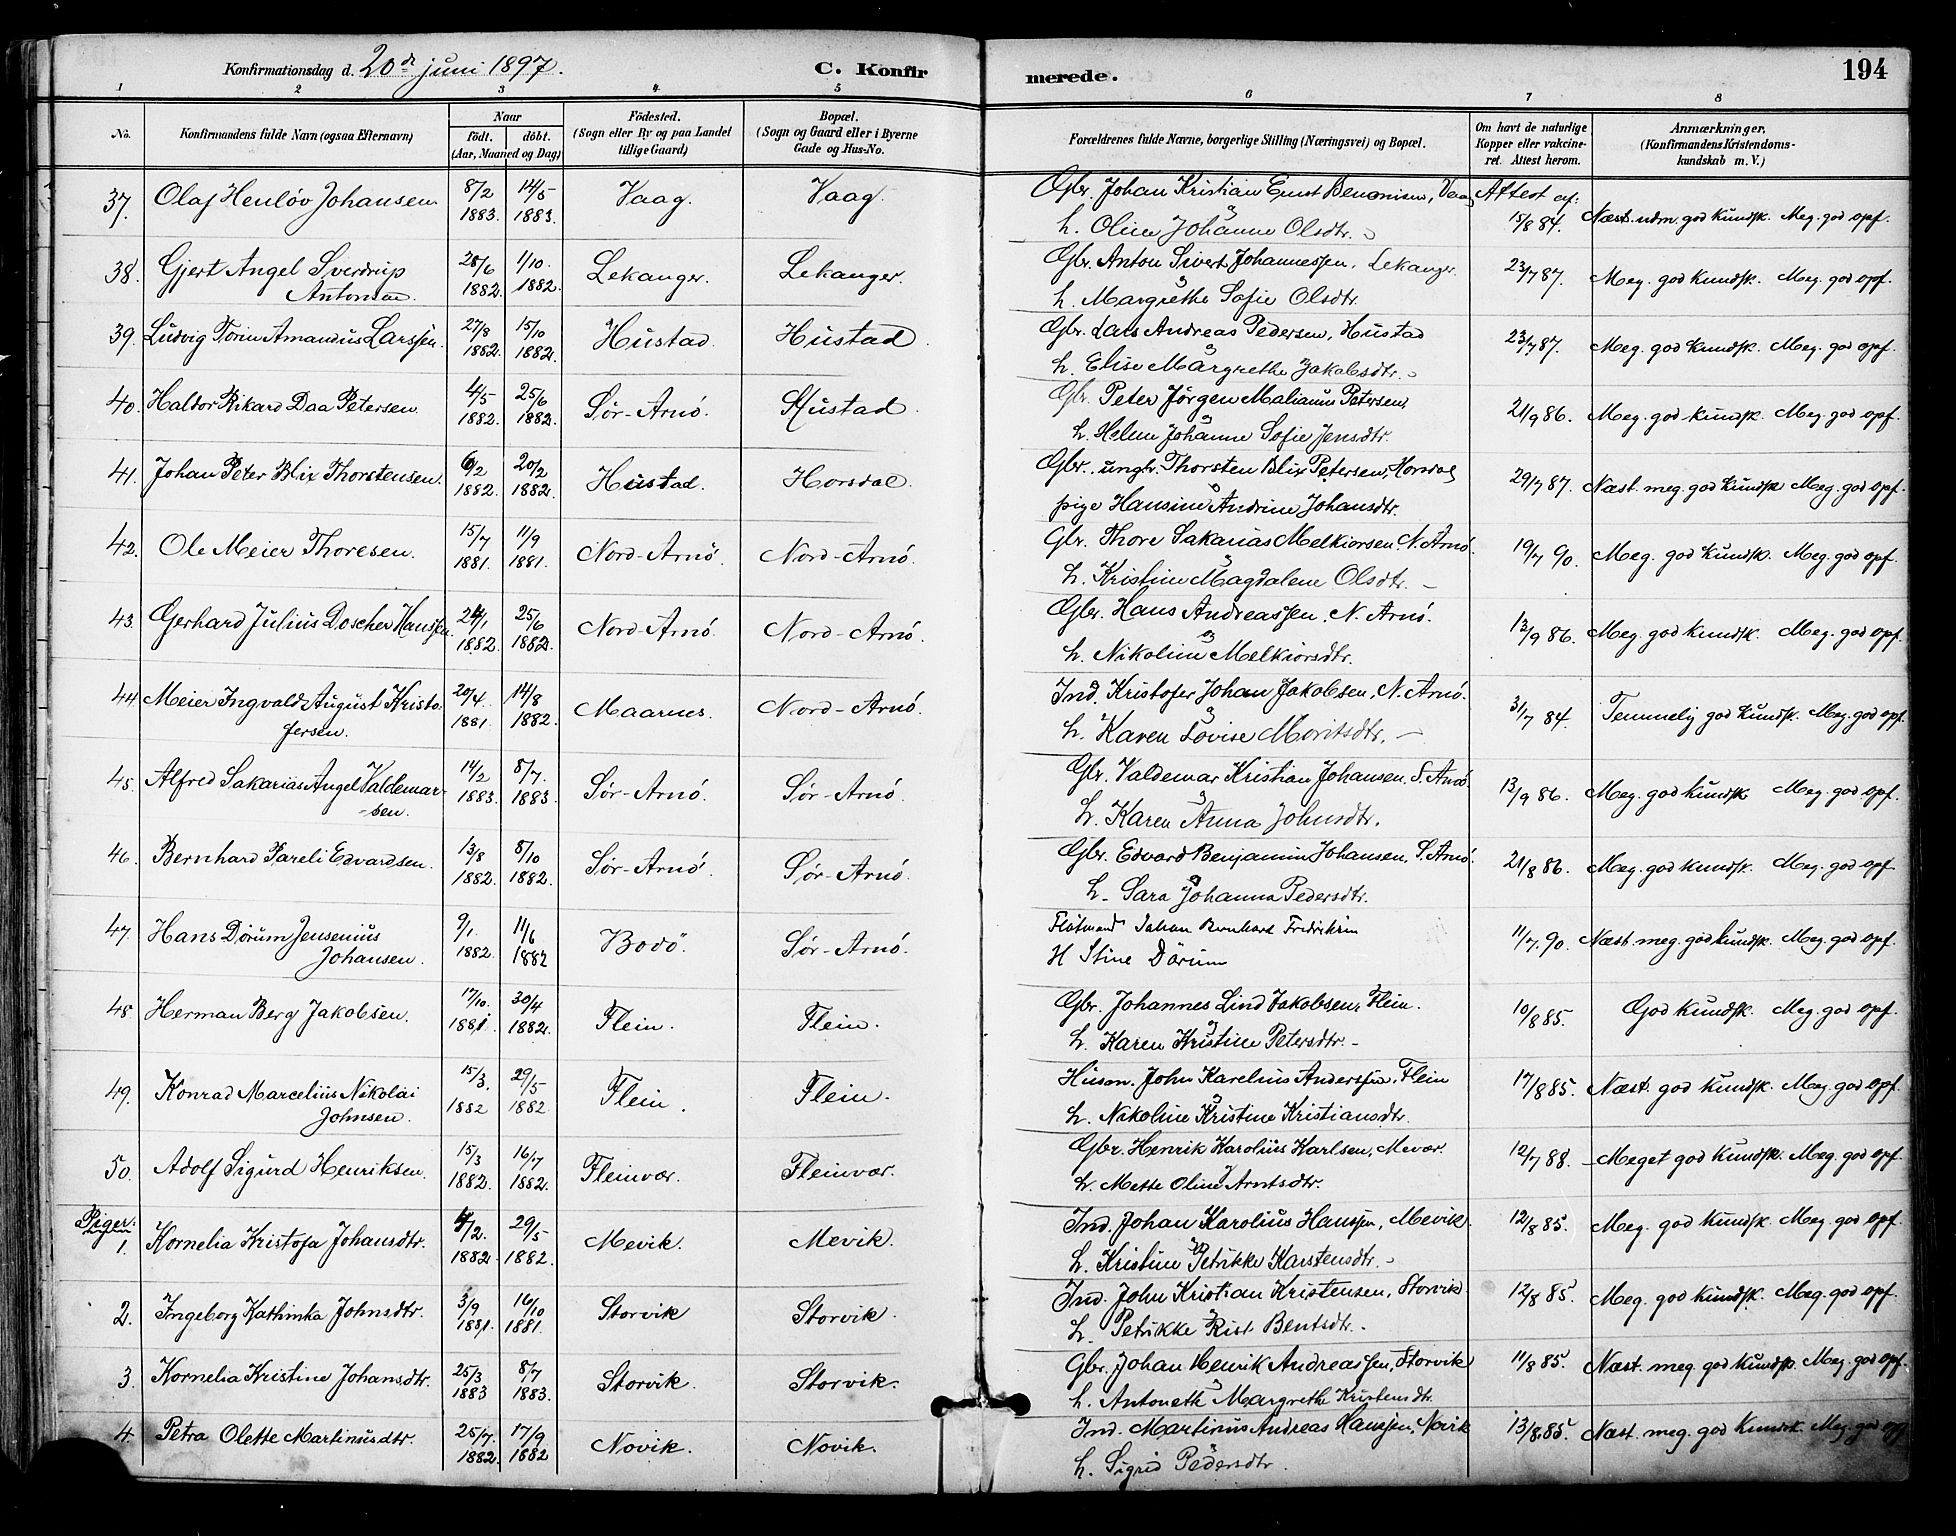 Konfirmationsdag d. 20de juni 1897.
C. Konfirmerede.
194
1 2 3 4 5 6 7 8
No.
Konfirmandens fulde Navn (ogsaa Efternavn)
Naar
født. døbt.
(Aar, Maaned og Dag)
Fødested.
(Sogn eller By og paa Landet
tillige Gaard)
Bopæl.
(Sogn og Gaard eller i Byerne
Gade og Hus-No.
Forældrenes fulde Navne, borgerlige Stilling (Næringsvei) og Bopæl.
Om havt de naturlige
Kopper eller vakcine-
ret. Attest herom.
Anmærkninger,
(Konfirmandens Kristendoms-
kundskab m. V.)
37. Olaf Henløv Johansen 8/2 1883. 14/5 1883. Vaag. Vaag. Gbr. Johan Kristian Ernst Benonisen, Vaag
h. Oline Johanne Olsdtr. Attest af: 15/8 84. Næst. udm. god kundsk. Meg. god opf.
38. Gjert Angel Sverdrup
Antonsen. 28/6 1882. 1/10. 1882. Lekanger. Lekanger. Gbr. Anton Sivert Johannessen, Lekanger.
h. Margrethe Sofie Olsdtr. 23/7 87. Meg. god kundsk. Meg. god opf.
39. Ludvig Torin Amandus Larssen. 27/8 1882. 15/10 1882. Hustad. Hustad. Gbr. Lars Andreas Pedersen, Hustad
h. Elise Margrethe Jakobsdtr. 23/7 87. Meg. god kundsk. Meg. god opf.
40. Haldor Rikard Daa Petersen. 4/5 1882. 25/6 1882. Sør-Arnö. Hustad. Gbr. Peter Jörgen Malianus Petersen,
h. Helene Johanne Sofie Jensdtr. 21/9 86. Meg. god kundsk. Meg. god opf.
41. Johan Peter Blix Thorstensen. 6/2 1882. 20/2 1882. Hustad. Horsdal. Gbr. ungk. Thorsten Blix Petersen, Horsdal
pige Hansine Andrine Johansdtr. 29/7 87. Næst. meg. god kundsk Meg. god opf.
42. Ole Meier Thoresen. 15/7 1881. 11/9 1881. Nord-Arnö. Nord-Arnö. Gbr. Thore Sakarias Melkiorsen. N. Arnö.
h. Kristine Magdalene Olsdtr. 19/7 90. Meg. god kundsk. Meg. god opf.
43. Gerhard Julius Doscher Hanssen. 24/1 1882. 25/6 1882. Nord-Arnö. Nord-Arnö. Gbr. Hans Andreassen. N. Arnö.
h. Nikoline Melkiorsdtr. 13/9 86. Meg. god kundsk. Meg. god opf.
44. Meier Ingvald August Kristo-
fersen. 20/4. 1881. 14/8 1882. Maarnes. Nord-Arnö. Ind. Kristofer Johan Jakobsen, N. Arnö.
h. Karen Lovise Moritsdtr. 31/7 84. Temmelig god kundsk. Meg. god opf.
45. Alfred Sakarias Angel Valdemar-
-sen. 14/2 1883. 8/7. 1883. Sør-Arnö. Sør-Arnö. Gbr. Valdemar Kristian Johansen, S. Arnö.
h. Karen Anna Johnsdtr. 13/9 86. Meg. god kundsk Meg. god opf.
46. Bernhard Pareli Edvardsen. 13/8 1882. 8/10 1882. Sør-Arnö. Sør-Arnö. Gbr. Edvard Benjamin Johansen. S. Arnö.
h. Sara Johanna Pedersdtr. 21/8 86. Meg. god kundsk. Meg. god opf
47. Hans Dørum Jensenius
Johansen. 9/1. 1882. 11/6 1882 Bodö. Sør-Arnö. Flötmand Johan Bernhard Fredriksen
H Stine Dörum 11/7. 90. Næst meg. god kundsk. Meg. god opf.
48. Herman Berg Jakobsen. 17/10. 1881. 30/4 1882. Flein. Flein. Gbr. Johannes Lind Jakobsen, Flein.
h. Karen Kristine Petersdtr. 10/8 85. God kundsk. Meg. god opf.
49. Konrad Marcelius Nikolai
Johnsen. 15/3. 1882 29/5 1882. Flein. Flein. Husm. John Karelius Anderssen, Flein
h. Nikoline Kristine Kristiansdtr. 17/8 85. Næst. god kundsk. Meg. god opf.
50. Adolf Sigurd Henriksen. 15/3 1882. 16/7 1882. Fleinvær. Fleinvær. Gbr. Henrik Karolius Karlsen, Mevær.
h. Mette Oline Arntsdtr. 12/7 88. Meget god kundsk. Meg. god opf.
Piger.
1. Kornelia Kristofa Johansdtr. 4/2. 1882. 29/5 1882. Mevik. Mevik. Ind. Johan Karolius Hanssen, Mevik.
h. Kristine Petrikke Karstensdtr. 12/8 85. Meg. god kundsk Meg. god opf.
2. Ingeborg Kathinka Johnsdtr. 3/9 1881. 16/10 1881. Storvik Storvik. Ind. John Kristian Kristensen, Storvik
h. Petrikke Rist Bentsdtr. 12/8 85. Meg. god kundsk. Meg. god opf.
3. Kornelia Kristine Johansdtr. 25/3 1883 8/7 1883. Storvik. Storvik. Gbr. Johan Henrik Andreassen, Storvik
h. Antoneth Margrethe Kristensdtr. 11/8 85. Næst. meg. god kundsk. Meg. god opf.
4. Petra Olette Martinusdtr. 25/7. 1882. 17/9 1882 Novik. Novik. Ind. Martinus Andreas Hanssen, Novik
h. Sigrid Pedersdtr. 13/8 85. Næst. meg. god kundsk. Meg. god opf